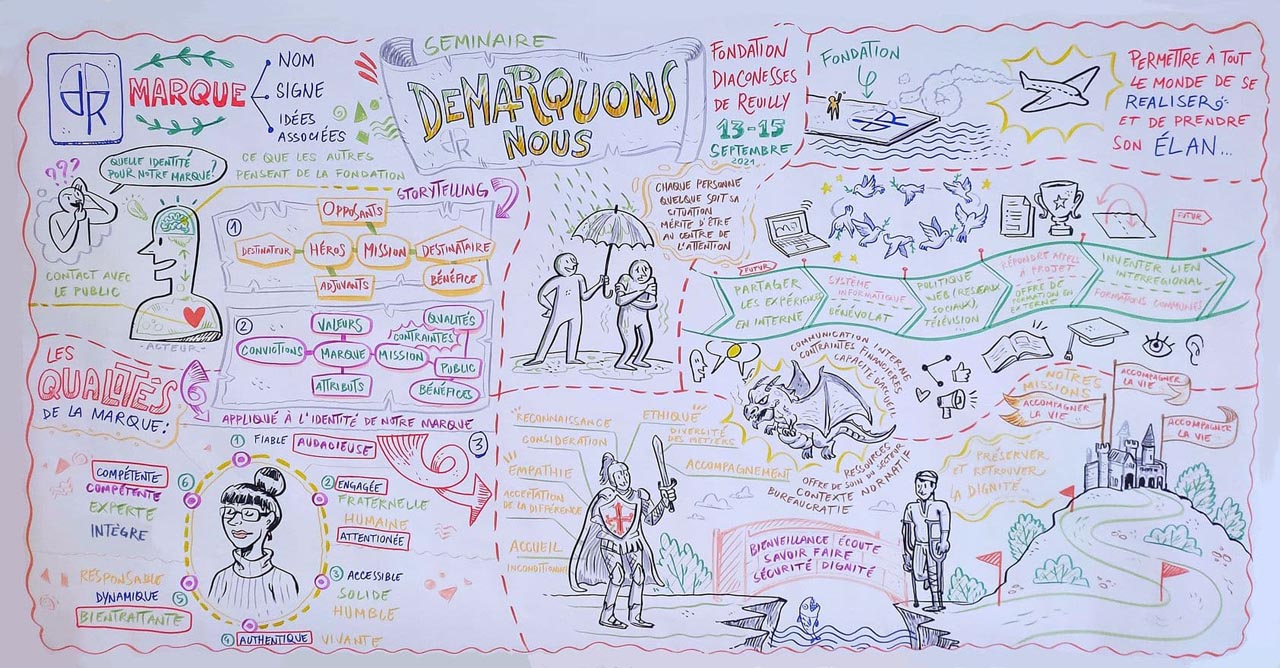 SEMINAIRE
DEMARQUONS
NOUS
FONDATION
DIACONESSES
DE REUILLY
13-15
SEPTEMBRE
2021
dR
MARQUE
NOM
SIGNE
IDÉES
ASSOCIÉES
???
QUELLE IDENTITÉ
POUR NOTRE MARQUE?
CE QUE LES AUTRES
PENSENT DE LA FONDATION
CONTACT AVEC
LE PUBLIC
-ACTEUR-
STORYTELLING
1
OPPOSANTS
DESTINATEUR
HÉROS
MISSION
DESTINATAIRE
ADJUVANTS
BÉNÉFICE
2
VALEURS
QUALITÉS
CONTRAINTES
CONVICTIONS
MARQUE
MISSION
PUBLIC
ATTRIBUTS
BÉNÉFICES
APPLIQUÉ À L'IDENTITÉ DE NOTRE MARQUE
3
LES
QUALITÉS
DE LA MARQUE:
1 FIABLE AUDACIEUSE
2 ENGAGÉE
FRATERNELLE
HUMAINE
ATTENTIONÉE
3 ACCESSIBLE
SOLIDE
HUMBLE
4 AUTHENTIQUE VIVANTE
5
RESPONSABLE
DYNAMIQUE
BIENTRAITANTE
6
COMPÉTENTE
COMPÉTENTE
EXPERTE
INTÈGRE
FONDATION
dR
PERMETTRE À TOUT
LE MONDE DE SE
REALISER
ET DE PRENDRE
SON ÉLAN...
CHAQUE PERSONNE
QUELQUE SOIT SA
SITUATION
MÉRITE D'ÊTRE
AU CENTRE DE
L'ATTENTION
FUTUR
PARTAGER
LES EXPÉRIENCES
EN INTERNE
SYSTÈME
INFORMATIQUE
BÉNÉVOLAT
POLITIQUE
WEB (RESEAUX
SOCIAUX),
TÉLÉVISION...
RÉPONDRE APPELS
À PROJET
OFFRE DE
FORMATION EN
EXTERNE
FUTUR
INVENTER LIEN
INTERREGIONAL
FORMATIONS COMMUNES
COMMUNICATION INTERNE
CONTRAINTES FINANCIÈRES
CAPACITÉ D'ACCUEIL
RESSOURCES
OFFRE DE SOIN DU SECTEUR
CONTEXTE NORMATIF
BUREAUCRATIE
RECONNAISSANCE
CONSIDÉRATION
EMPATHIE
ACCEPTATION
DE LA DIFFÉRENCE
ACCUEIL
INCONDITIONNEL
ETHIQUE
DIVERSITÉ
DES MÉTIERS
ACCOMPAGNEMENT
BIENVEILLANCE ÉCOUTE
SAVOIR FAIRE
SÉCURITÉ | DIGNITÉ
PRÉSERVER
ET RETROUVER
LA DIGNITÉ...
NOTRES
MISSIONS
ACCOMPAGNER
LA VIE
ACCOMPAGNER
LA VIE
ACCOMPAGNER
LA VIE